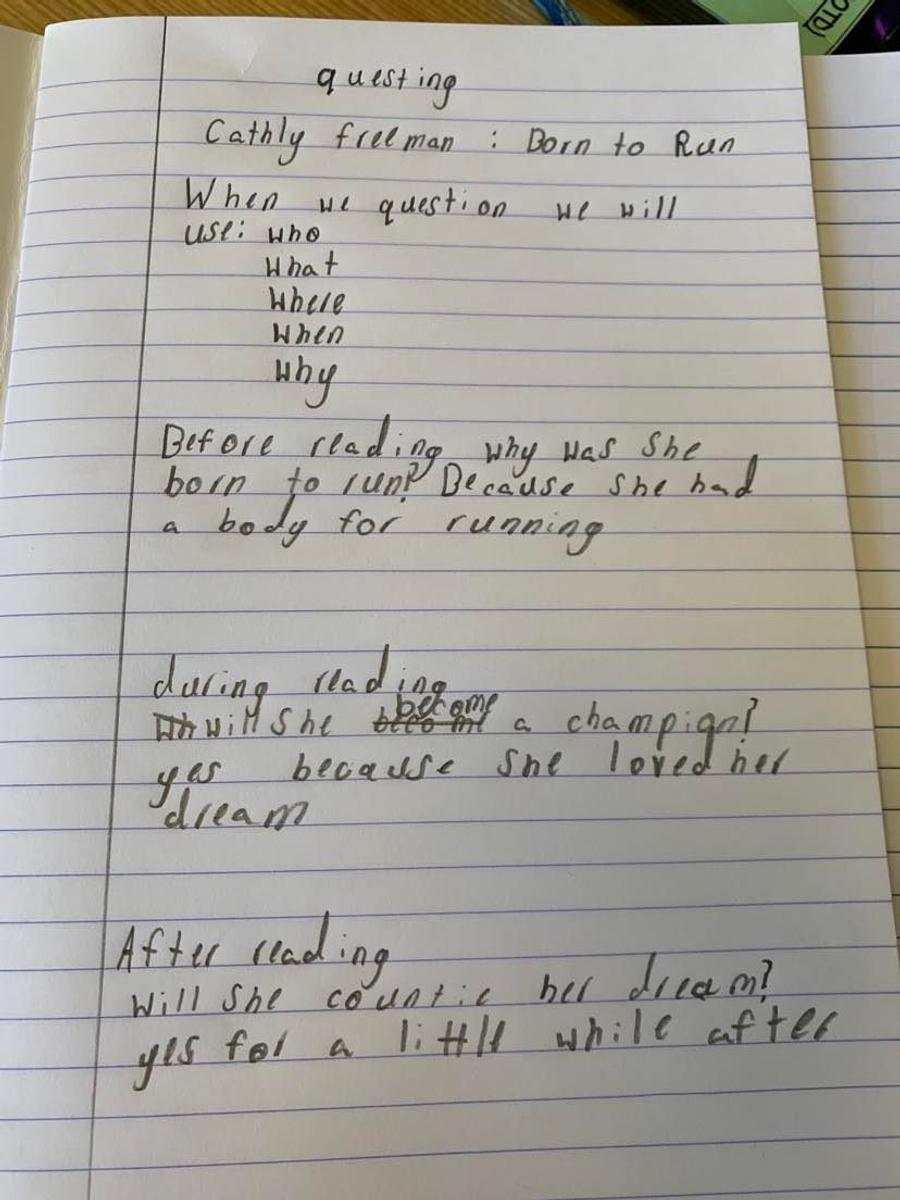 OTD
questing
Cathly freeman : Born to Run
When we question we will
use: who
What
Where
When
Why
Before reading why was she
born to run? Because she had
a body for running
during reading
become
Wh will she become a champion?
yes because she loved her
dream
After reading
Will she countie her dream?
yes for a little while after